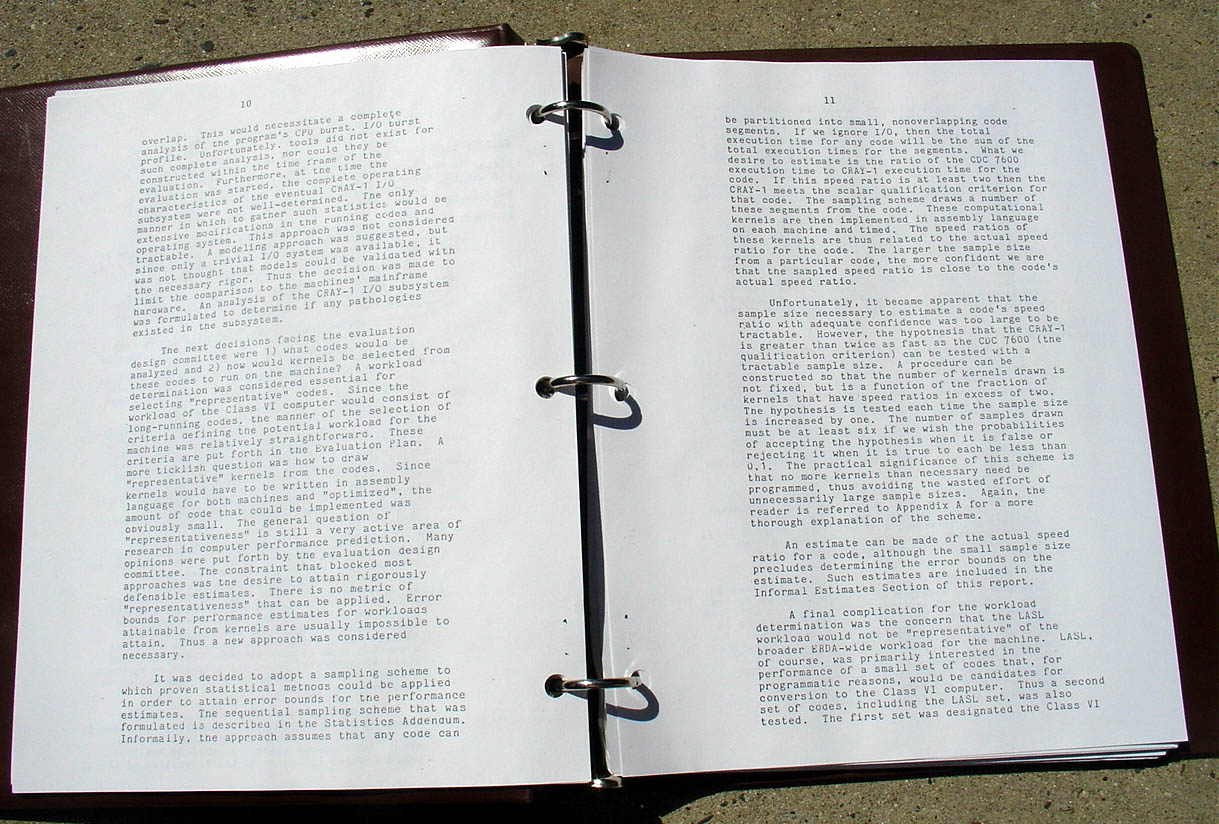 10
overlap. This would necessitate a complete
analysis of the program's CPU burst, I/O burst
profile. Unfortunately, tools did not exist for
such complete analysis, nor could they be
constructed within the time frame of the
evaluation. Furthermore, at the time the
evaluation was started, the complete operating
characteristics of the eventual CRAY-1 I/O
subsystem were not well-determined. The only
manner in which to gather such statistics would be
extensive modifications in the running codes and
operating system. This approach was not considered
tractable. A modeling approach was suggested, but
since only a trivial I/O system was available, it
was not thought that models could be validated with
the necessary rigor. Thus the decision was made to
limit the comparison to the machines' mainframe
hardware. An analysis of the CRAY-1 I/O subsystem
was formulated to determine if any pathologies
existed in the subsystem.
The next decisions facing the evaluation
design committee were 1) what codes would be
analyzed and 2) how would kernels be selected from
these codes to run on the machine? A workload
determination was considered essential for
selecting "representative" codes. Since the
workload of the Class VI computer would consist of
long-running codes, the manner of the selection of
criteria defining the potential workload for the
machine was relatively straightforward. These
criteria are put forth in the Evaluation Plan. A
more ticklish question was how to draw
"representative" kernels from the codes. Since
kernels would have to be written in assembly
language for both machines and "optimized", the
amount of code that could be implemented was
obviously small. The general question of
"representativeness" is still a very active area of
research in computer performance prediction. Many
opinions were put forth by the evaluation design
committee. The constraint that blocked most
approaches was the desire to attain rigorously
defensible estimates. There is no metric of
"representativeness" that can be applied. Error
bounds for performance estimates for workloads
attainable from kernels are usually impossible to
attain. Thus a new approach was considered
necessary.
It was decided to adopt a sampling scheme to
which proven statistical methods could be applied
in order to attain error bounds for the performance
estimates. The sequential sampling scheme that was
formulated is described in the Statistics Addendum.
Informally, the approach assumes that any code can
11
be partitioned into small, nonoverlapping code
segments. If we ignore I/O, then the total
execution time for any code will be the sum of the
total execution times for the segments. What we
desire to estimate is the ratio of the CDC 7600
execution time to CRAY-1 execution time for the
code. If this speed ratio is at least two then the
CRAY-1 meets the scalar qualification criterion for
that code. The sampling scheme draws a number of
these segments from the code. These computational
kernels are then implemented in assembly language
on each machine and timed. The speed ratios of
these kernels are thus related to the actual speed
ratio for the code. The larger the sample size
from a particular code, the more confident we are
that the sampled speed ratio is close to the code's
actual speed ratio.
Unfortunately, it became apparent that the
sample size necessary to estimate a code's speed
ratio with adequate confidence was too large to be
tractable. However, the hypothesis that the CRAY-1
is greater than twice as fast as the CDC 7600 (the
qualification criterion) can be tested with a
tractable sample size. A procedure can be
constructed so that the number of kernels drawn is
not fixed, but is a function of the fraction of
kernels that have speed ratios in excess of two.
The hypothesis is tested each time the sample size
is increased by one. The number of samples drawn
must be at least six if we wish the probabilities
of accepting the hypothesis when it is false or
rejecting it when it is true to each be less than
0.1. The practical significance of this scheme is
that no more kernels than necessary need be
programmed, thus avoiding the wasted effort of
unnecessarily large sample sizes. Again, the
reader is referred to Appendix A for a more
thorough explanation of the scheme.
An estimate can be made of the actual speed
ratio for a code, although the small sample size
precludes determining the error bounds on the
estimate. Such estimates are included in the
Informal Estimates Section of this report.
A final complication for the workload
determination was the concern that the LASL
workload would not be "representative" of the
broader ERDA-wide workload for the machine. LASL,
of course, was primarily interested in the
performance of a small set of codes that, for
programmatic reasons, would be candidates for
conversion to the Class VI computer. Thus a second
set of codes, including the LASL set, was also
tested. The first set was designated the Class VI